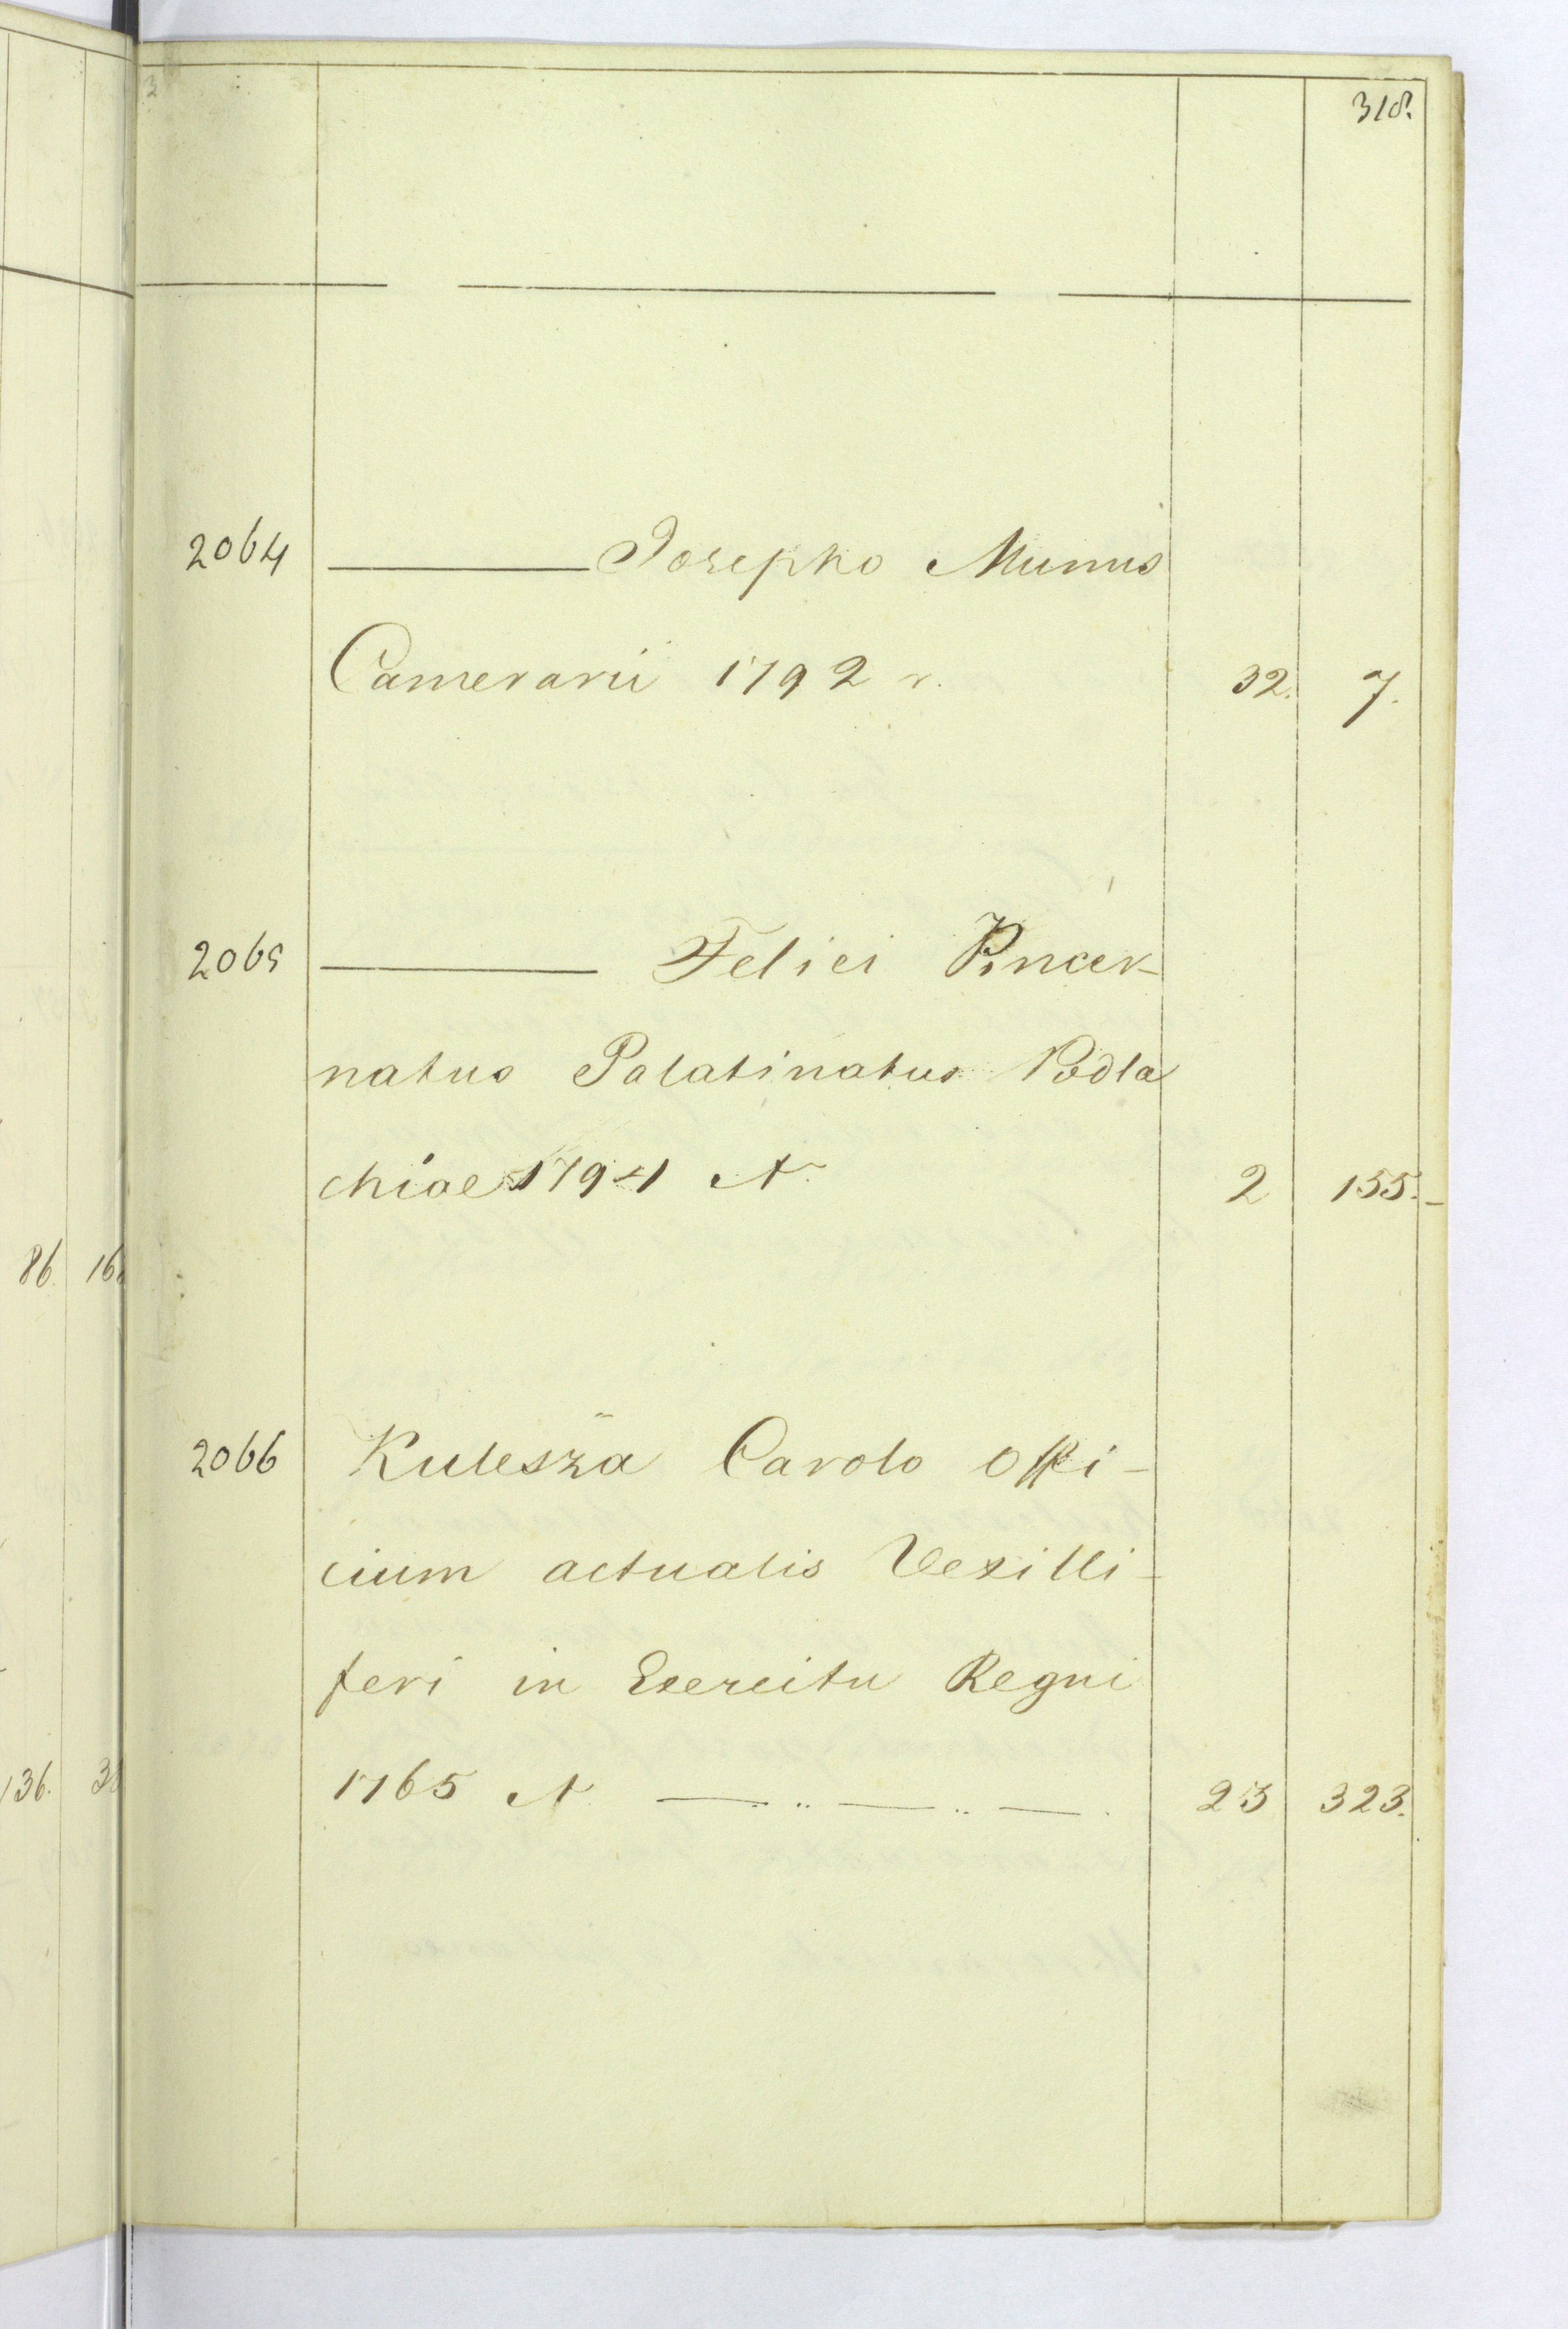 318.
2064 ——— Josepho Munus
Camerarii 1792 r. 32. 7.
2065 ——— Felici Pincer-
natus Palatinatus Podla
chiae 1794 A. 2 155.
2066 Kulesza Carolo Offi-
cium actualis Vexilli-
feri in Exercitu Regni
1765 A. — .. — .. — 23 323.
86. 16
136. 3